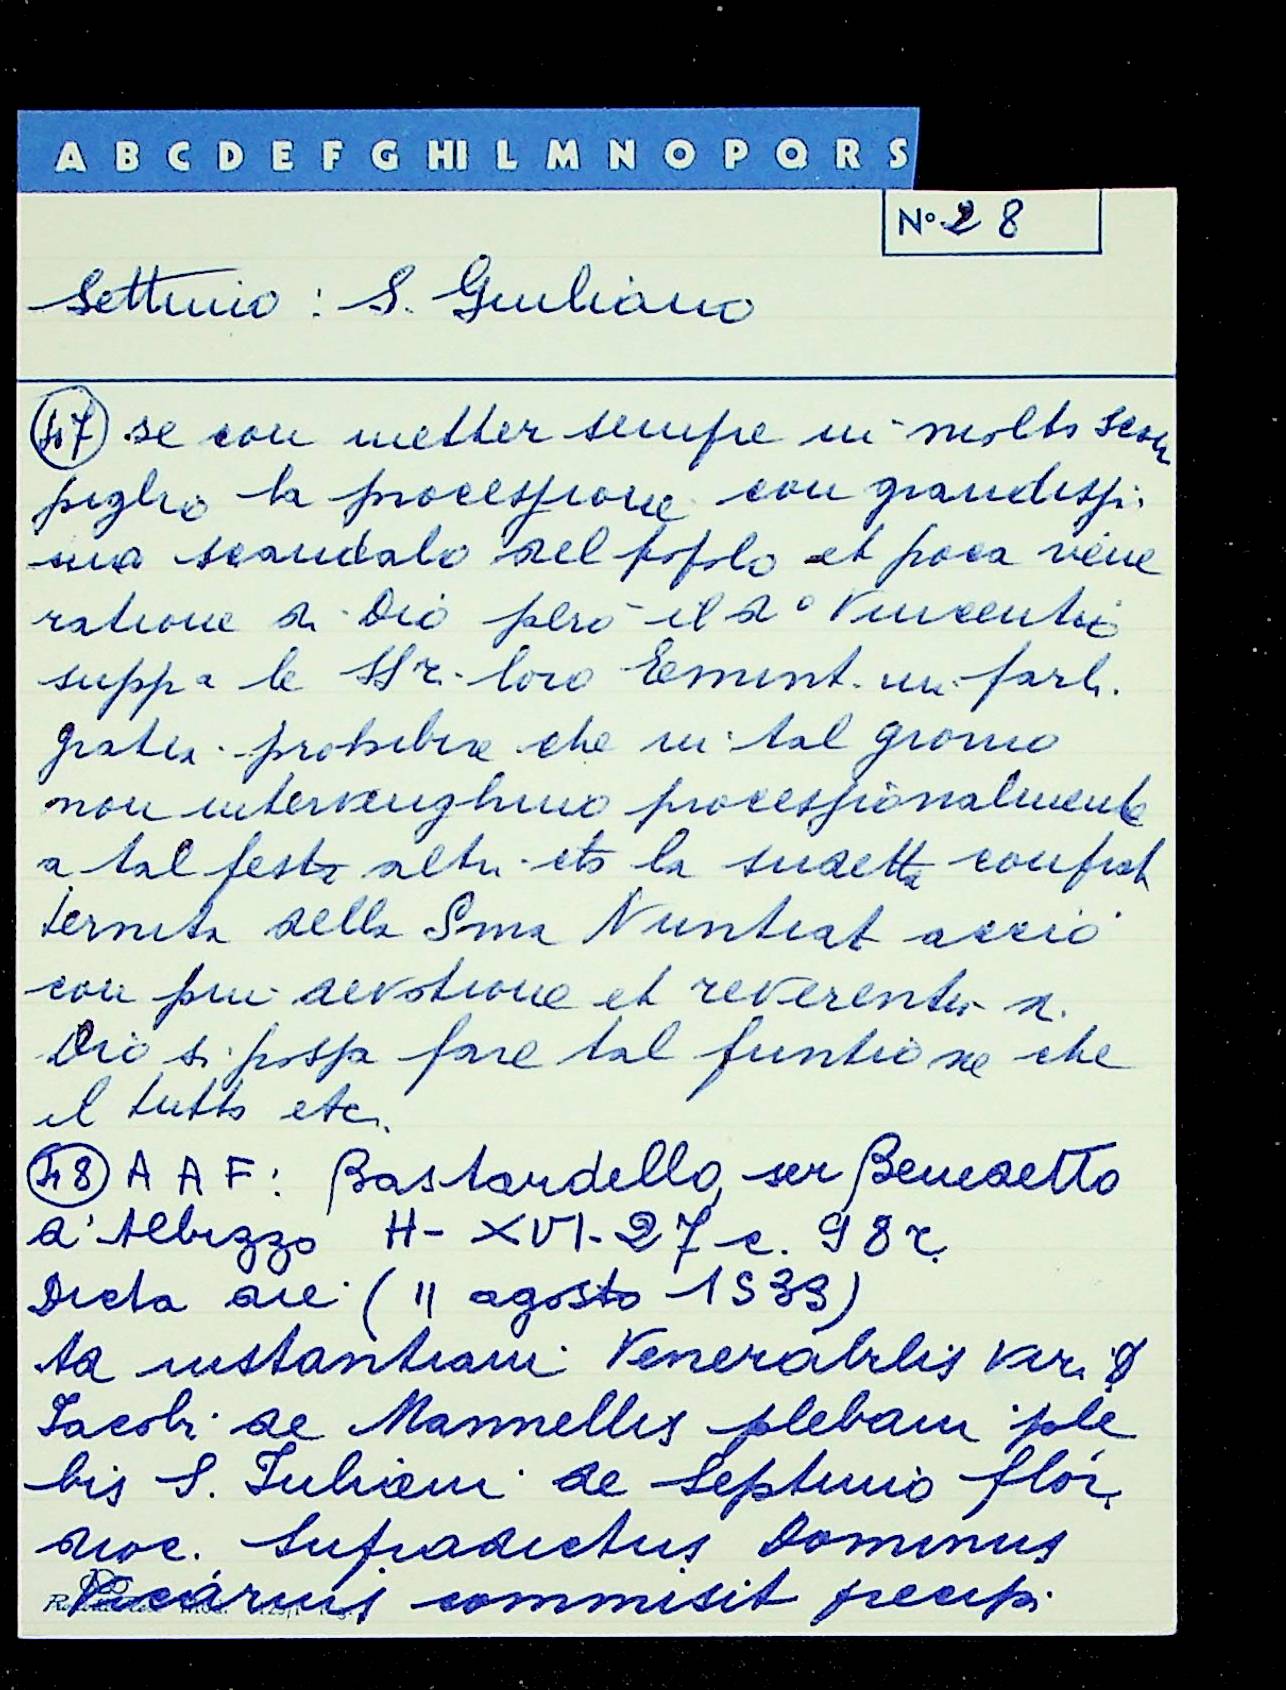 A B C D E F G HI L M N O P Q R S
N° 28
Settimo : S. Giuliano
47 se con metter sempre in molto scon
piglio la processione con grandissi.
mo scandalo del popolo et poca vene
ratione di Dio però il d° Vincentio
supp a le SS r. loro Eminent. in farli.
gratia prohibire che in tal giorno
non intervenghino processionalmente
a tal festa altri che la sudetta confrat
ternita della Sma Nuntiat acciò
con piu devotione et reverentia di
Dio si possa fare tal funtione che
il tutto etc.
48 A A F: Bastardello, ser Benedetto
d'Albizzo H- XVI-27 c. 98r.
Dicta die (11 agosto 1533)
Ad instantiam Venerabilis viri D
Iacobi de Mannellis plebani ple
bis S. Iuliani de Septimo flor.
dioc. Supradictus Dominus
Vicarius commisit precipi